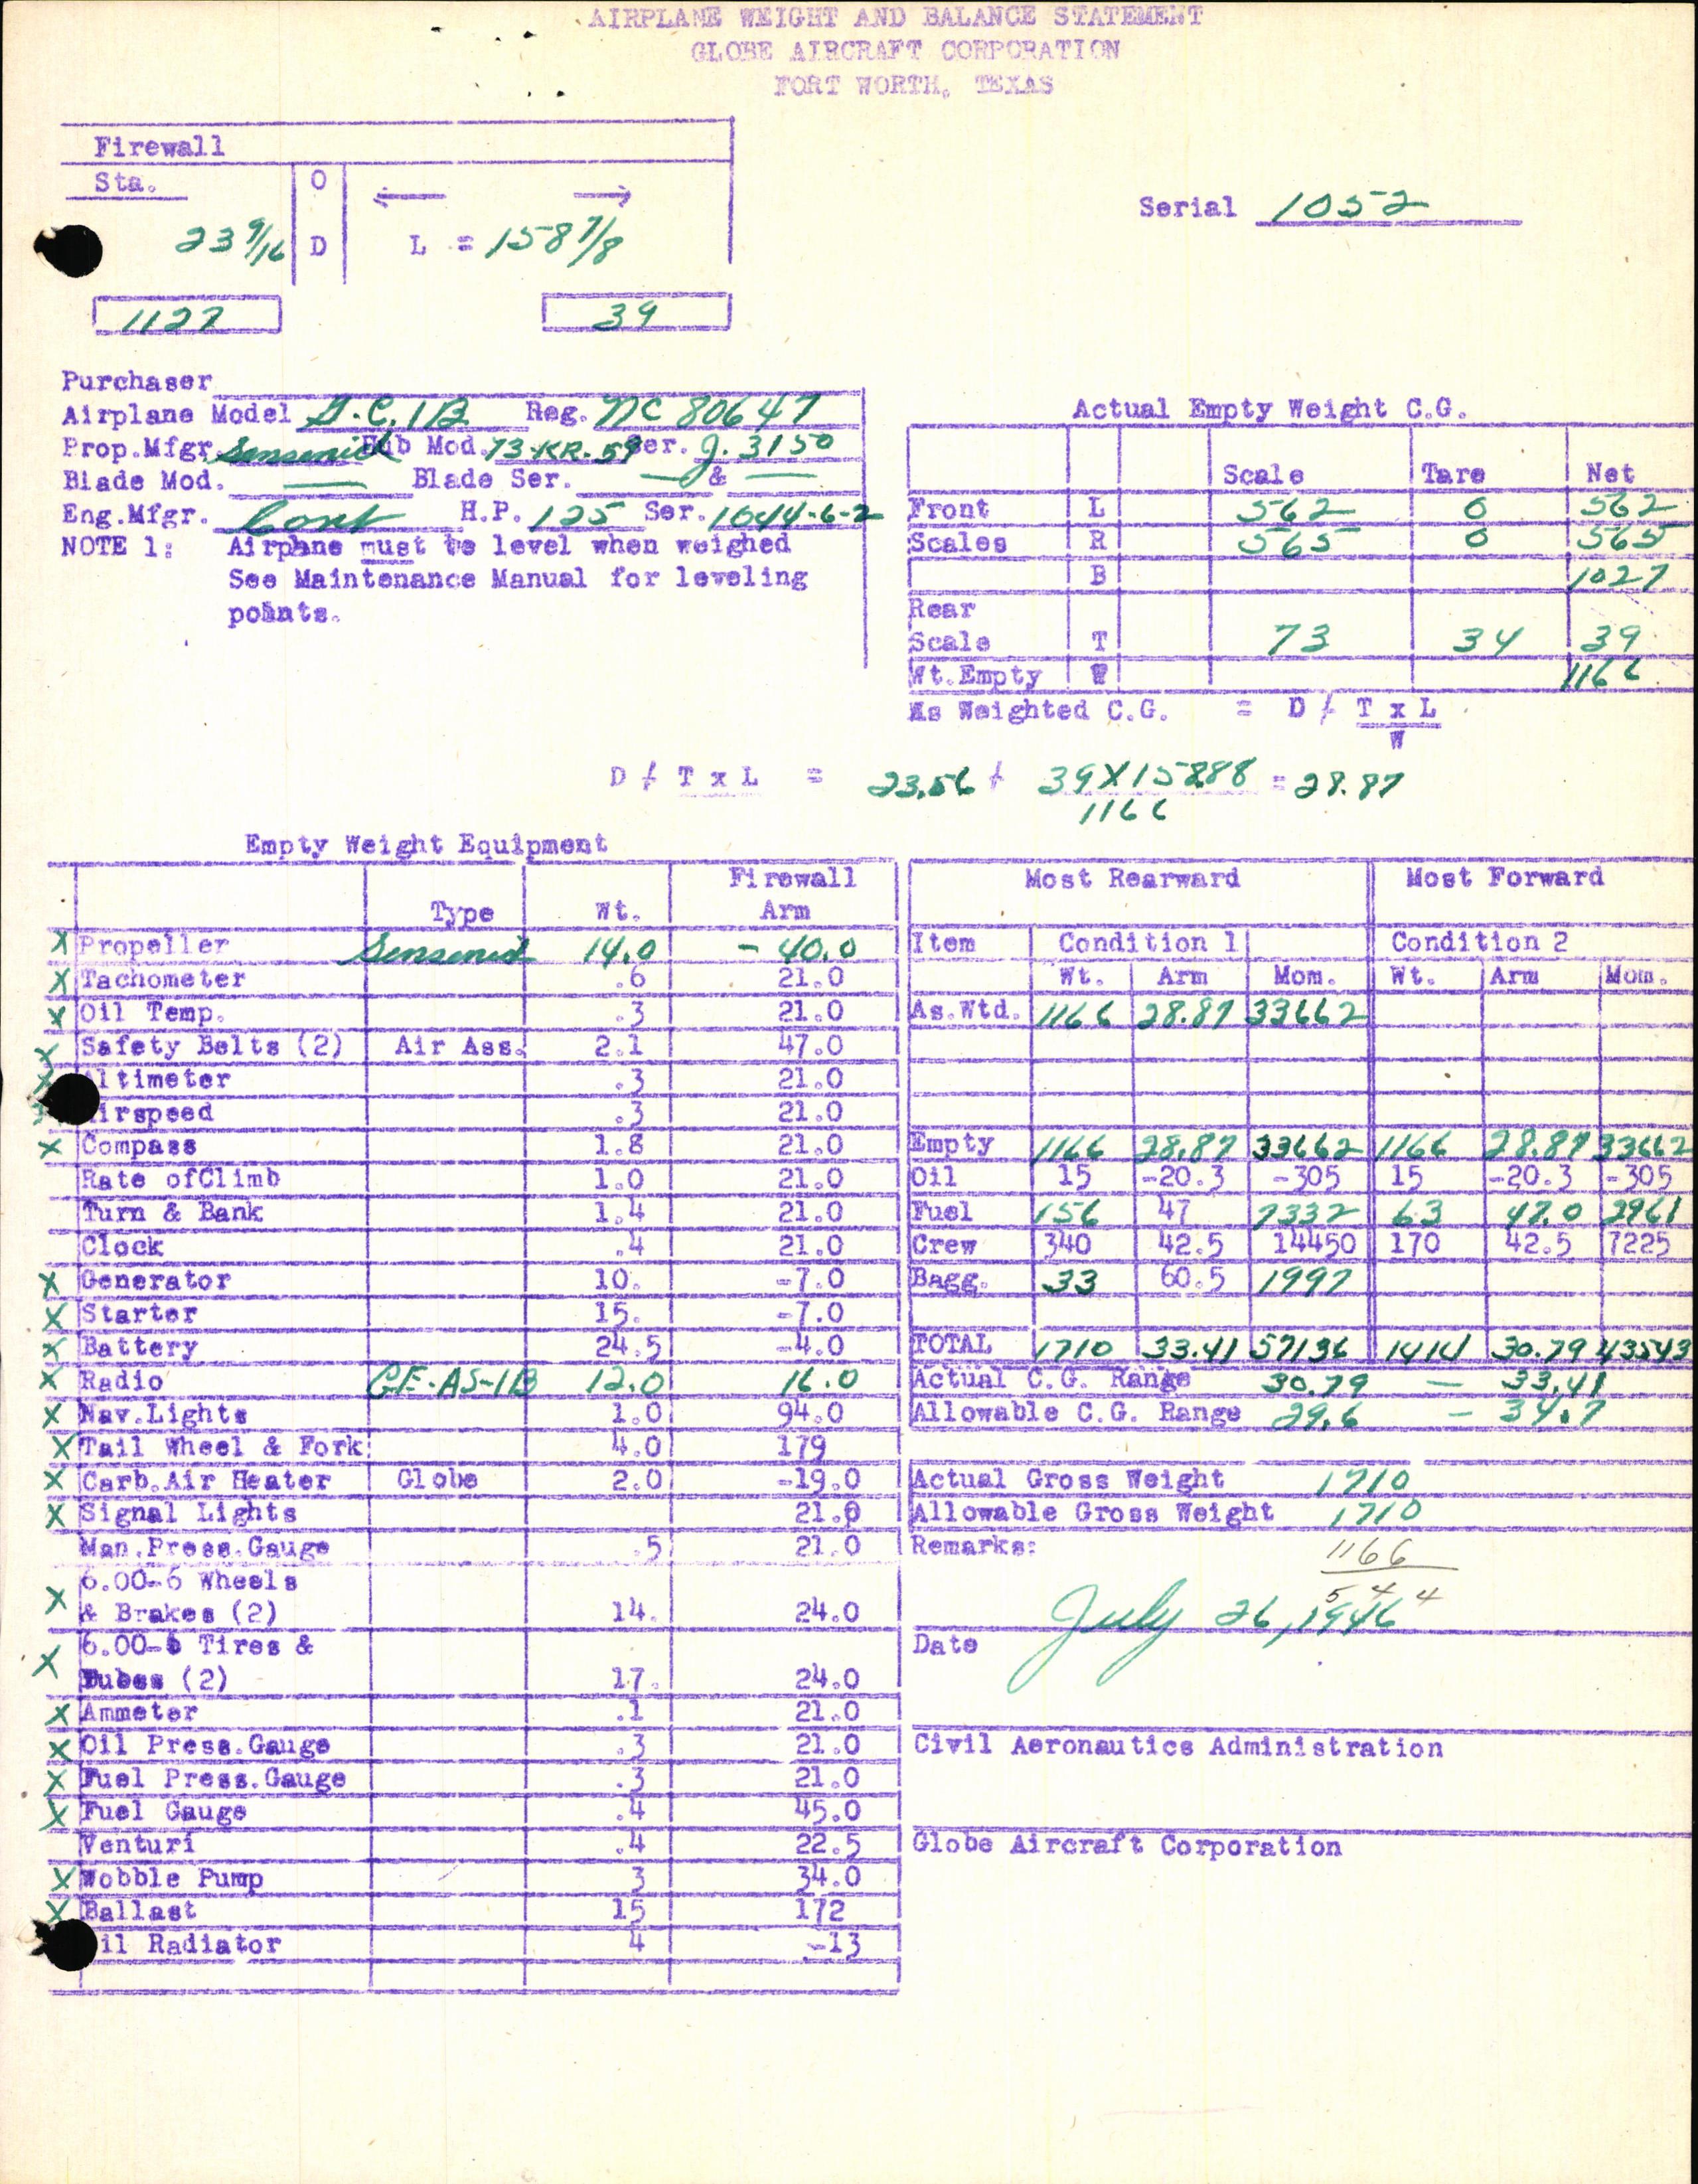 AIRPLANE WEIGHT AND BALANCE STATEMENT
GLOBE AIRCRAFT CORPORATION
FORT WORTH, TEXAS
Firewall
Sta. O ← →
23 9/16 D L = 158 7/8
Serial 1052
1127 39
Purchaser
Airplane Model G.C.1B Reg. NC 80647
Prop.Mfgr. Sensenich Hub Mod. 73-KR-59 Ser. J.3150
Blade Mod. — Blade Ser. — & —
Eng.Mfgr. Cont H.P. 125 Ser. 1044-6-2
NOTE 1: Airplane must be level when weighed
See Maintenance Manual for leveling
points.
Actual Empty Weight C.G.
Scale Tare Net
Front L 562 0 562
Scales R 565 0 565
B 1027
Rear
Scale T 73 34 39
Wt.Empty W 1166
As Weighted C.G. = D / T x L
W
D / T x L = 23.56 / 39X158.88 = 28.87
1166
Empty Weight Equipment
Firewall
Type Wt. Arm
X Propeller Sensenich 14.0 -40.0
X Tachometer .6 21.0
X Oil Temp. .3 21.0
X Safety Belts (2) Air Ass. 2.1 47.0
X ltimeter .3 21.0
irspeed .3 21.0
X Compass 1.8 21.0
Rate ofClimb 1.0 21.0
Turn & Bank 1.4 21.0
Clock .4 21.0
X Generator 10. -7.0
X Starter 15. -7.0
X Battery 24.5 -4.0
X Radio GE-AS-1B 12.0 16.0
X Nav.Lights 1.0 94.0
X Tail Wheel & Fork 4.0 179
X Carb.Air Heater Globe 2.0 -19.0
X Signal Lights 21.0
Man.Press.Gauge .5 21.0
6.00-6 Wheels
X & Brakes (2) 14. 24.0
6.00-6 Tires &
X Tubes (2) 17. 24.0
X Ammeter .1 21.0
X Oil Press.Gauge .3 21.0
X Fuel Press.Gauge .3 21.0
X Fuel Gauge .4 45.0
Venturi .4 22.5
X Wobble Pump 3 34.0
X Ballast 15 172
il Radiator 4 -13
Most Rearward Most Forward
Item Condition 1 Condition 2
Wt. Arm Mom. Wt. Arm Mom.
As.Wtd. 1166 28.87 33662
Empty 1166 28.87 33662 1166 28.87 33662
Oil 15 -20.3 -305 15 -20.3 -305
Fuel 156 47 7332 63 47.0 2961
Crew 340 42.5 14450 170 42.5 7225
Bagg. 33 60.5 1997
TOTAL 1710 33.41 57136 1414 30.79 43543
Actual C.G. Range 30.79 — 33.41
Allowable C.G. Range 29.6 — 34.7
Actual Gross Weight 1710
Allowable Gross Weight 1710
Remarks: 1166
5 4 4
July 26, 1946
Date
Civil Aeronautics Administration
Globe Aircraft Corporation